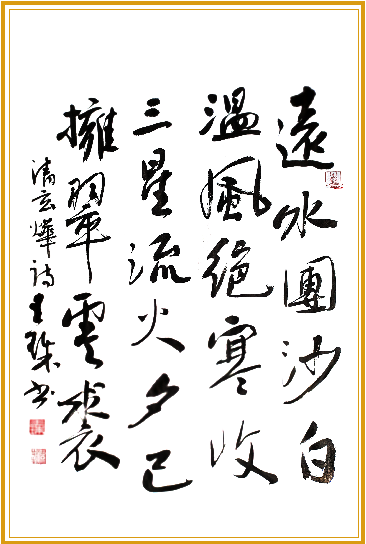 遠水團沙白
溫風絕寒收
三星流火夕已
擁翠雲裘
清玄燁詩